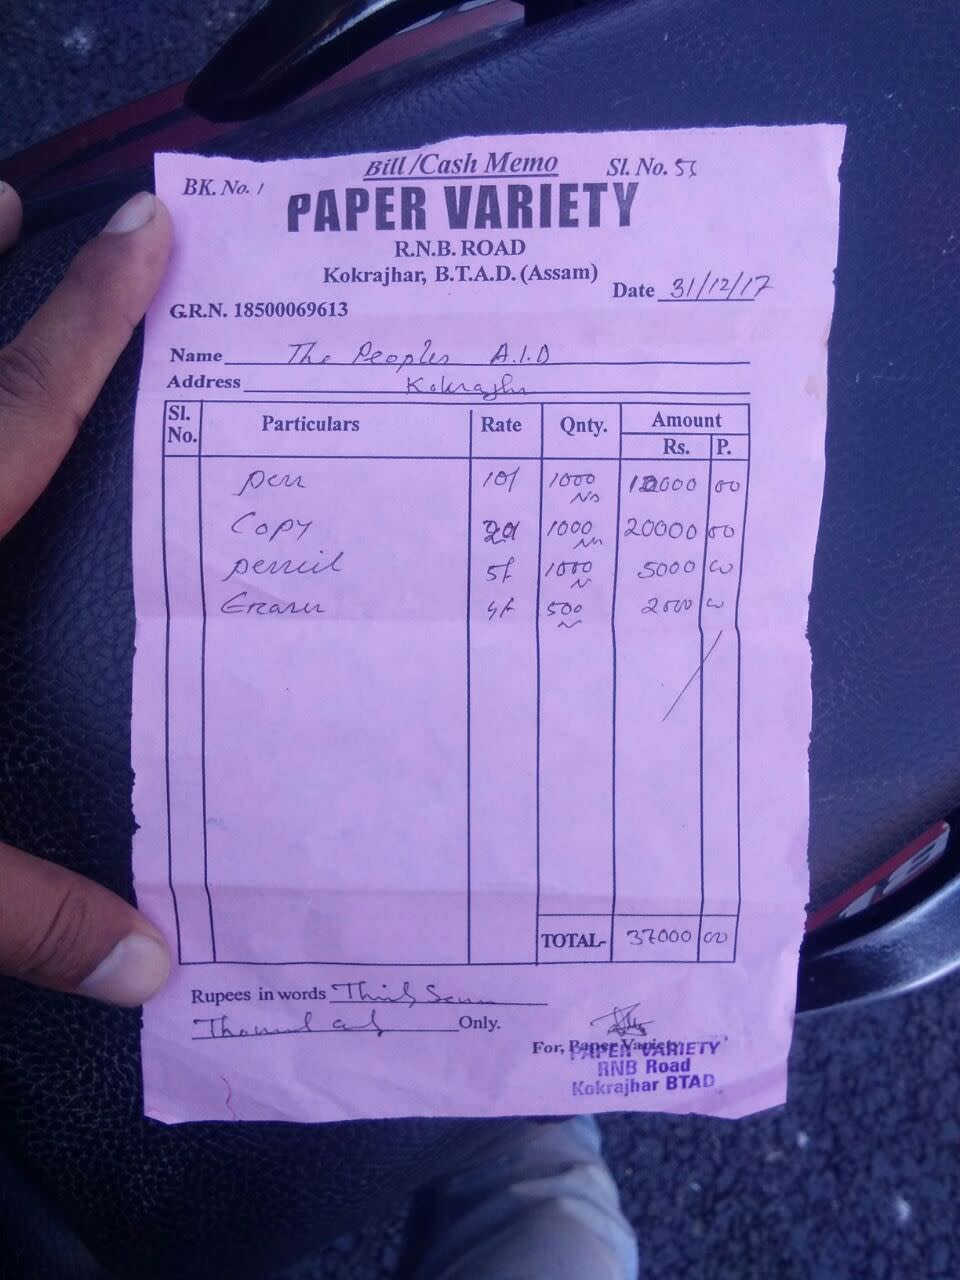 Bill/Cash Memo
BK. No. 1 Sl. No.
PAPER VARIETY
R.N.B. ROAD
Kokrajhar, B.T.A.D. (Assam)
Date 31/12/17
G.R.N. 18500069613
Name The Peoples A.I.D
Address Kokrajhr
Sl. No. Particulars Rate Qnty. Amount
Rs. P.
pen 10/ 1000 10000 00
Copy 20 1000 20000 00
pencil 5/ 1000 5000 00
Eraser 4/ 500 2000 00
TOTAL- 37000 00
Rupees in words Thirty Seven
Thousand only Only.
For, Paper Variety
PAPER VARIETY
RNB Road
Kokrajhar BTAD